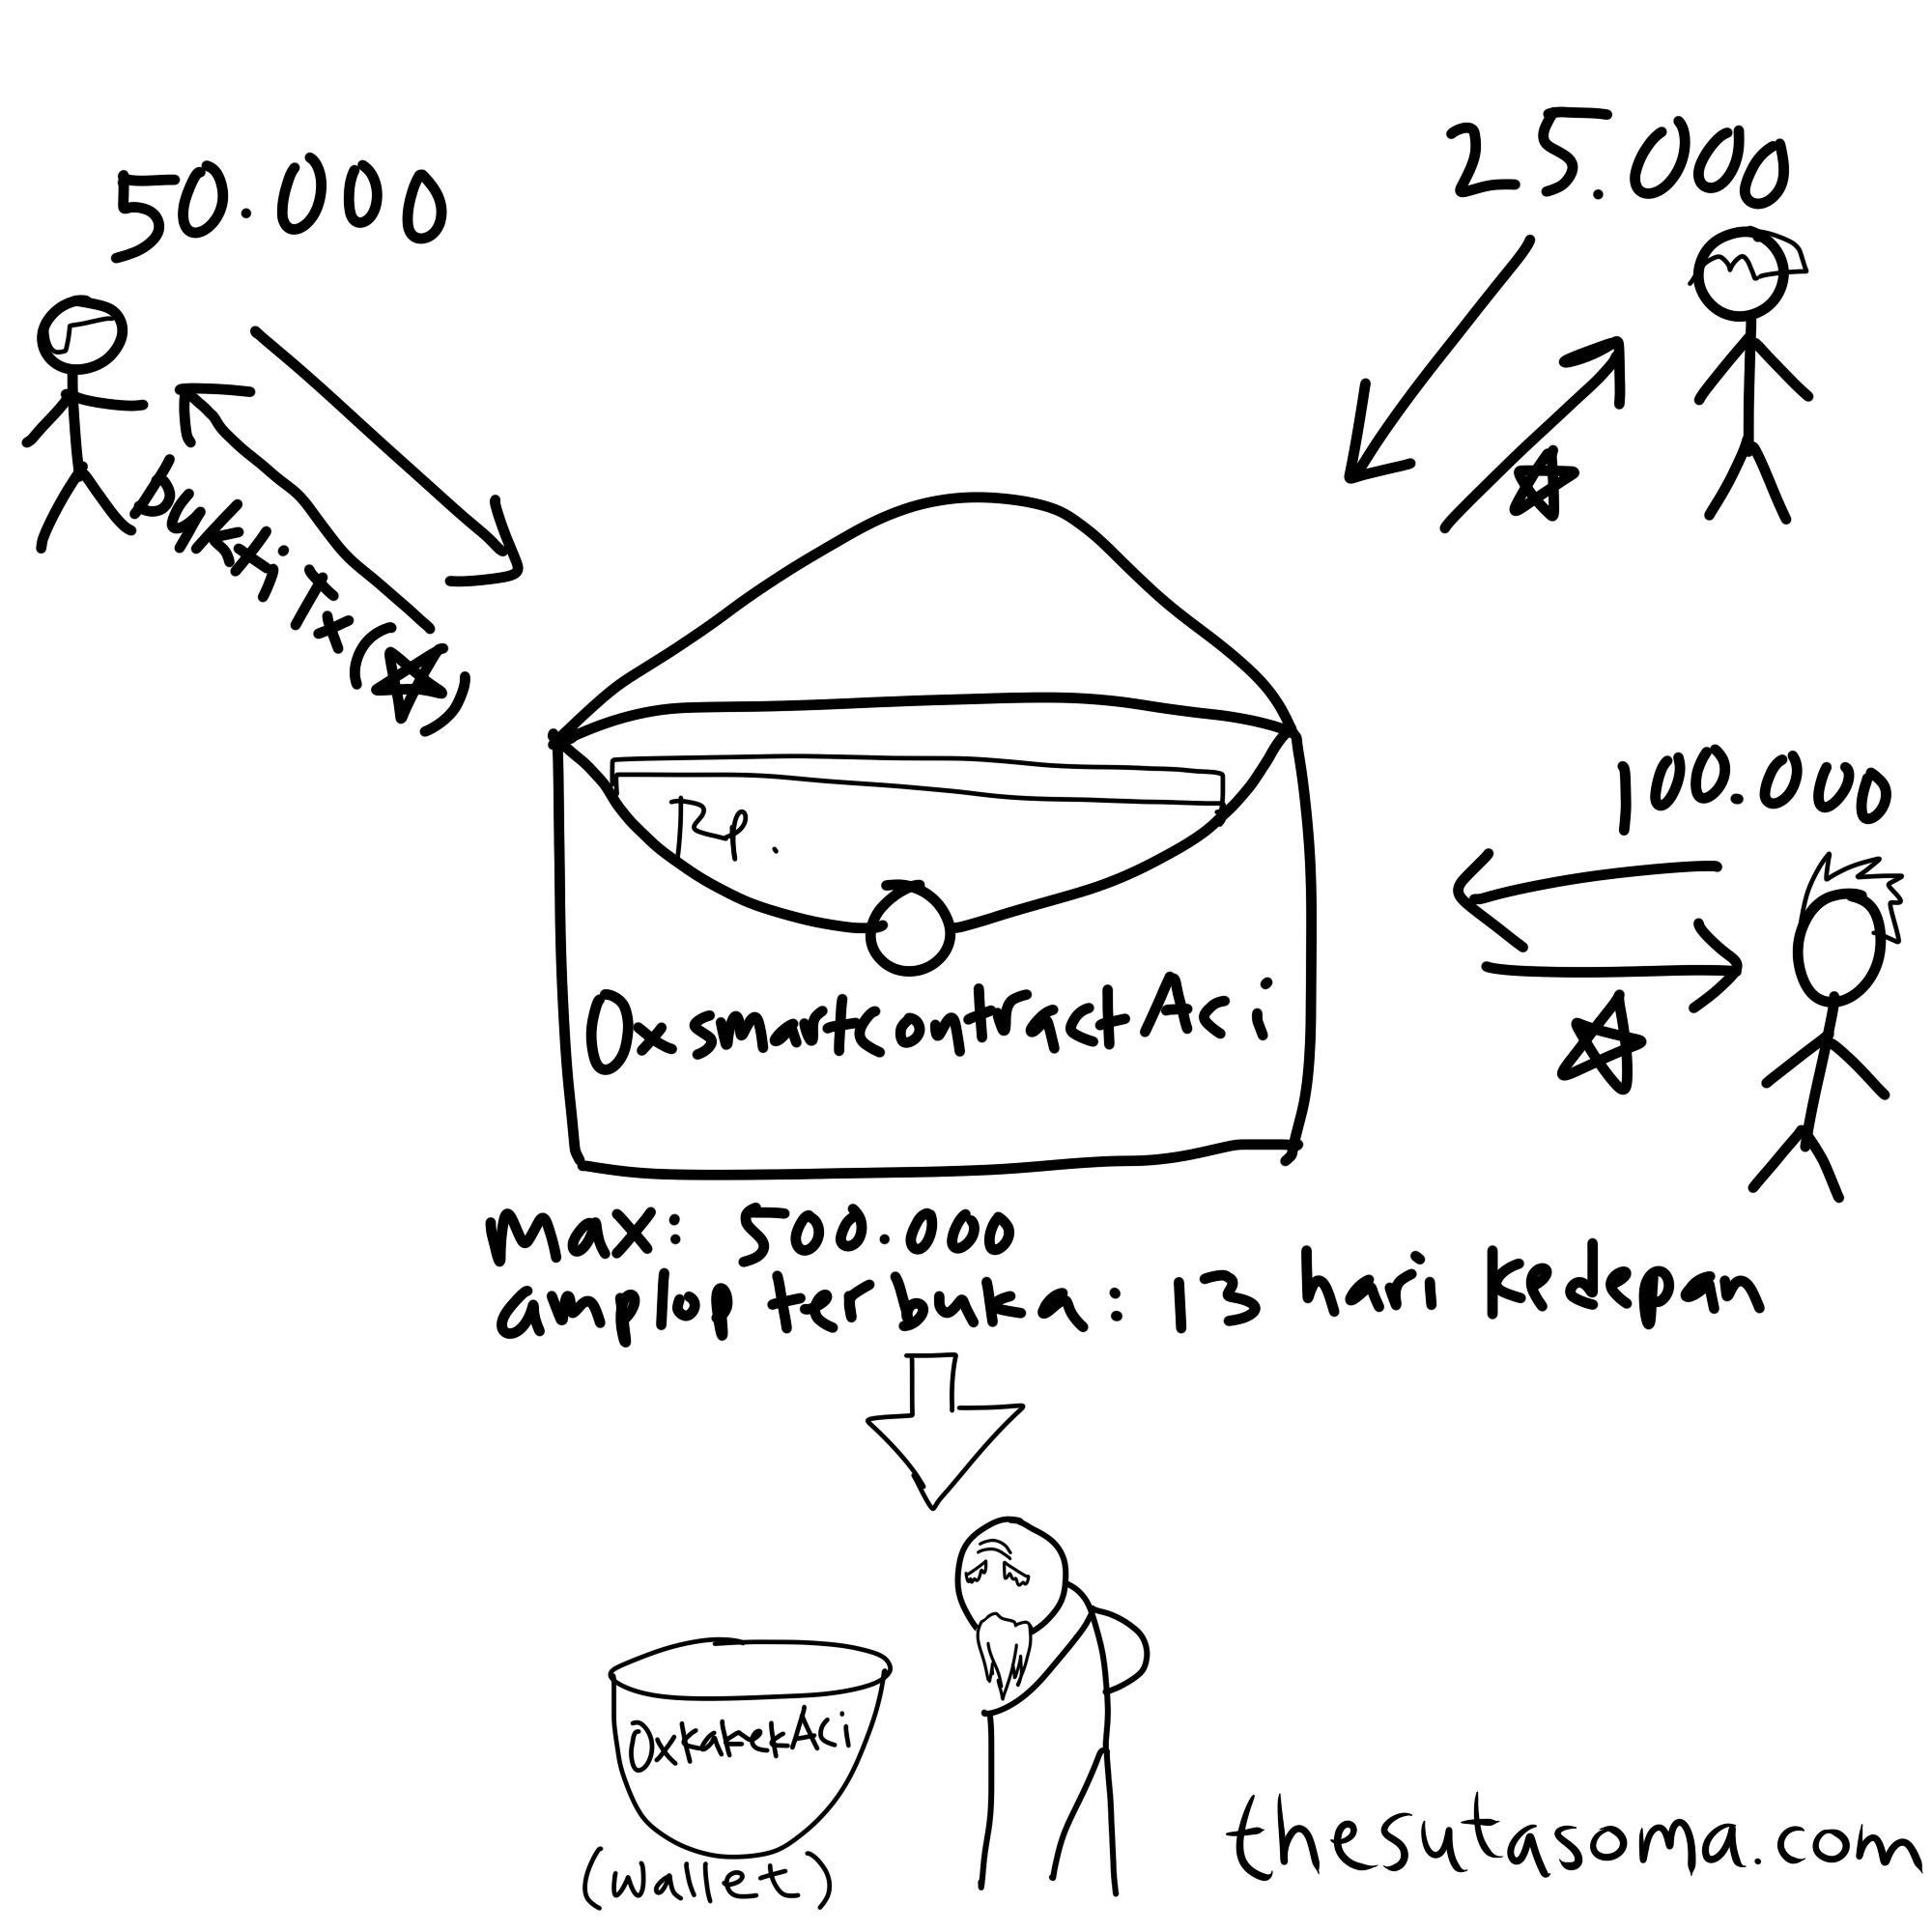 50.000
25.000
bukti Tx (☆)
100.000
Rp.
0x smartcontractAci
max: 500.000
amplop terbuka: 13 hari kedepan
0xkakekAci
(wallet)
thesutasoma.com